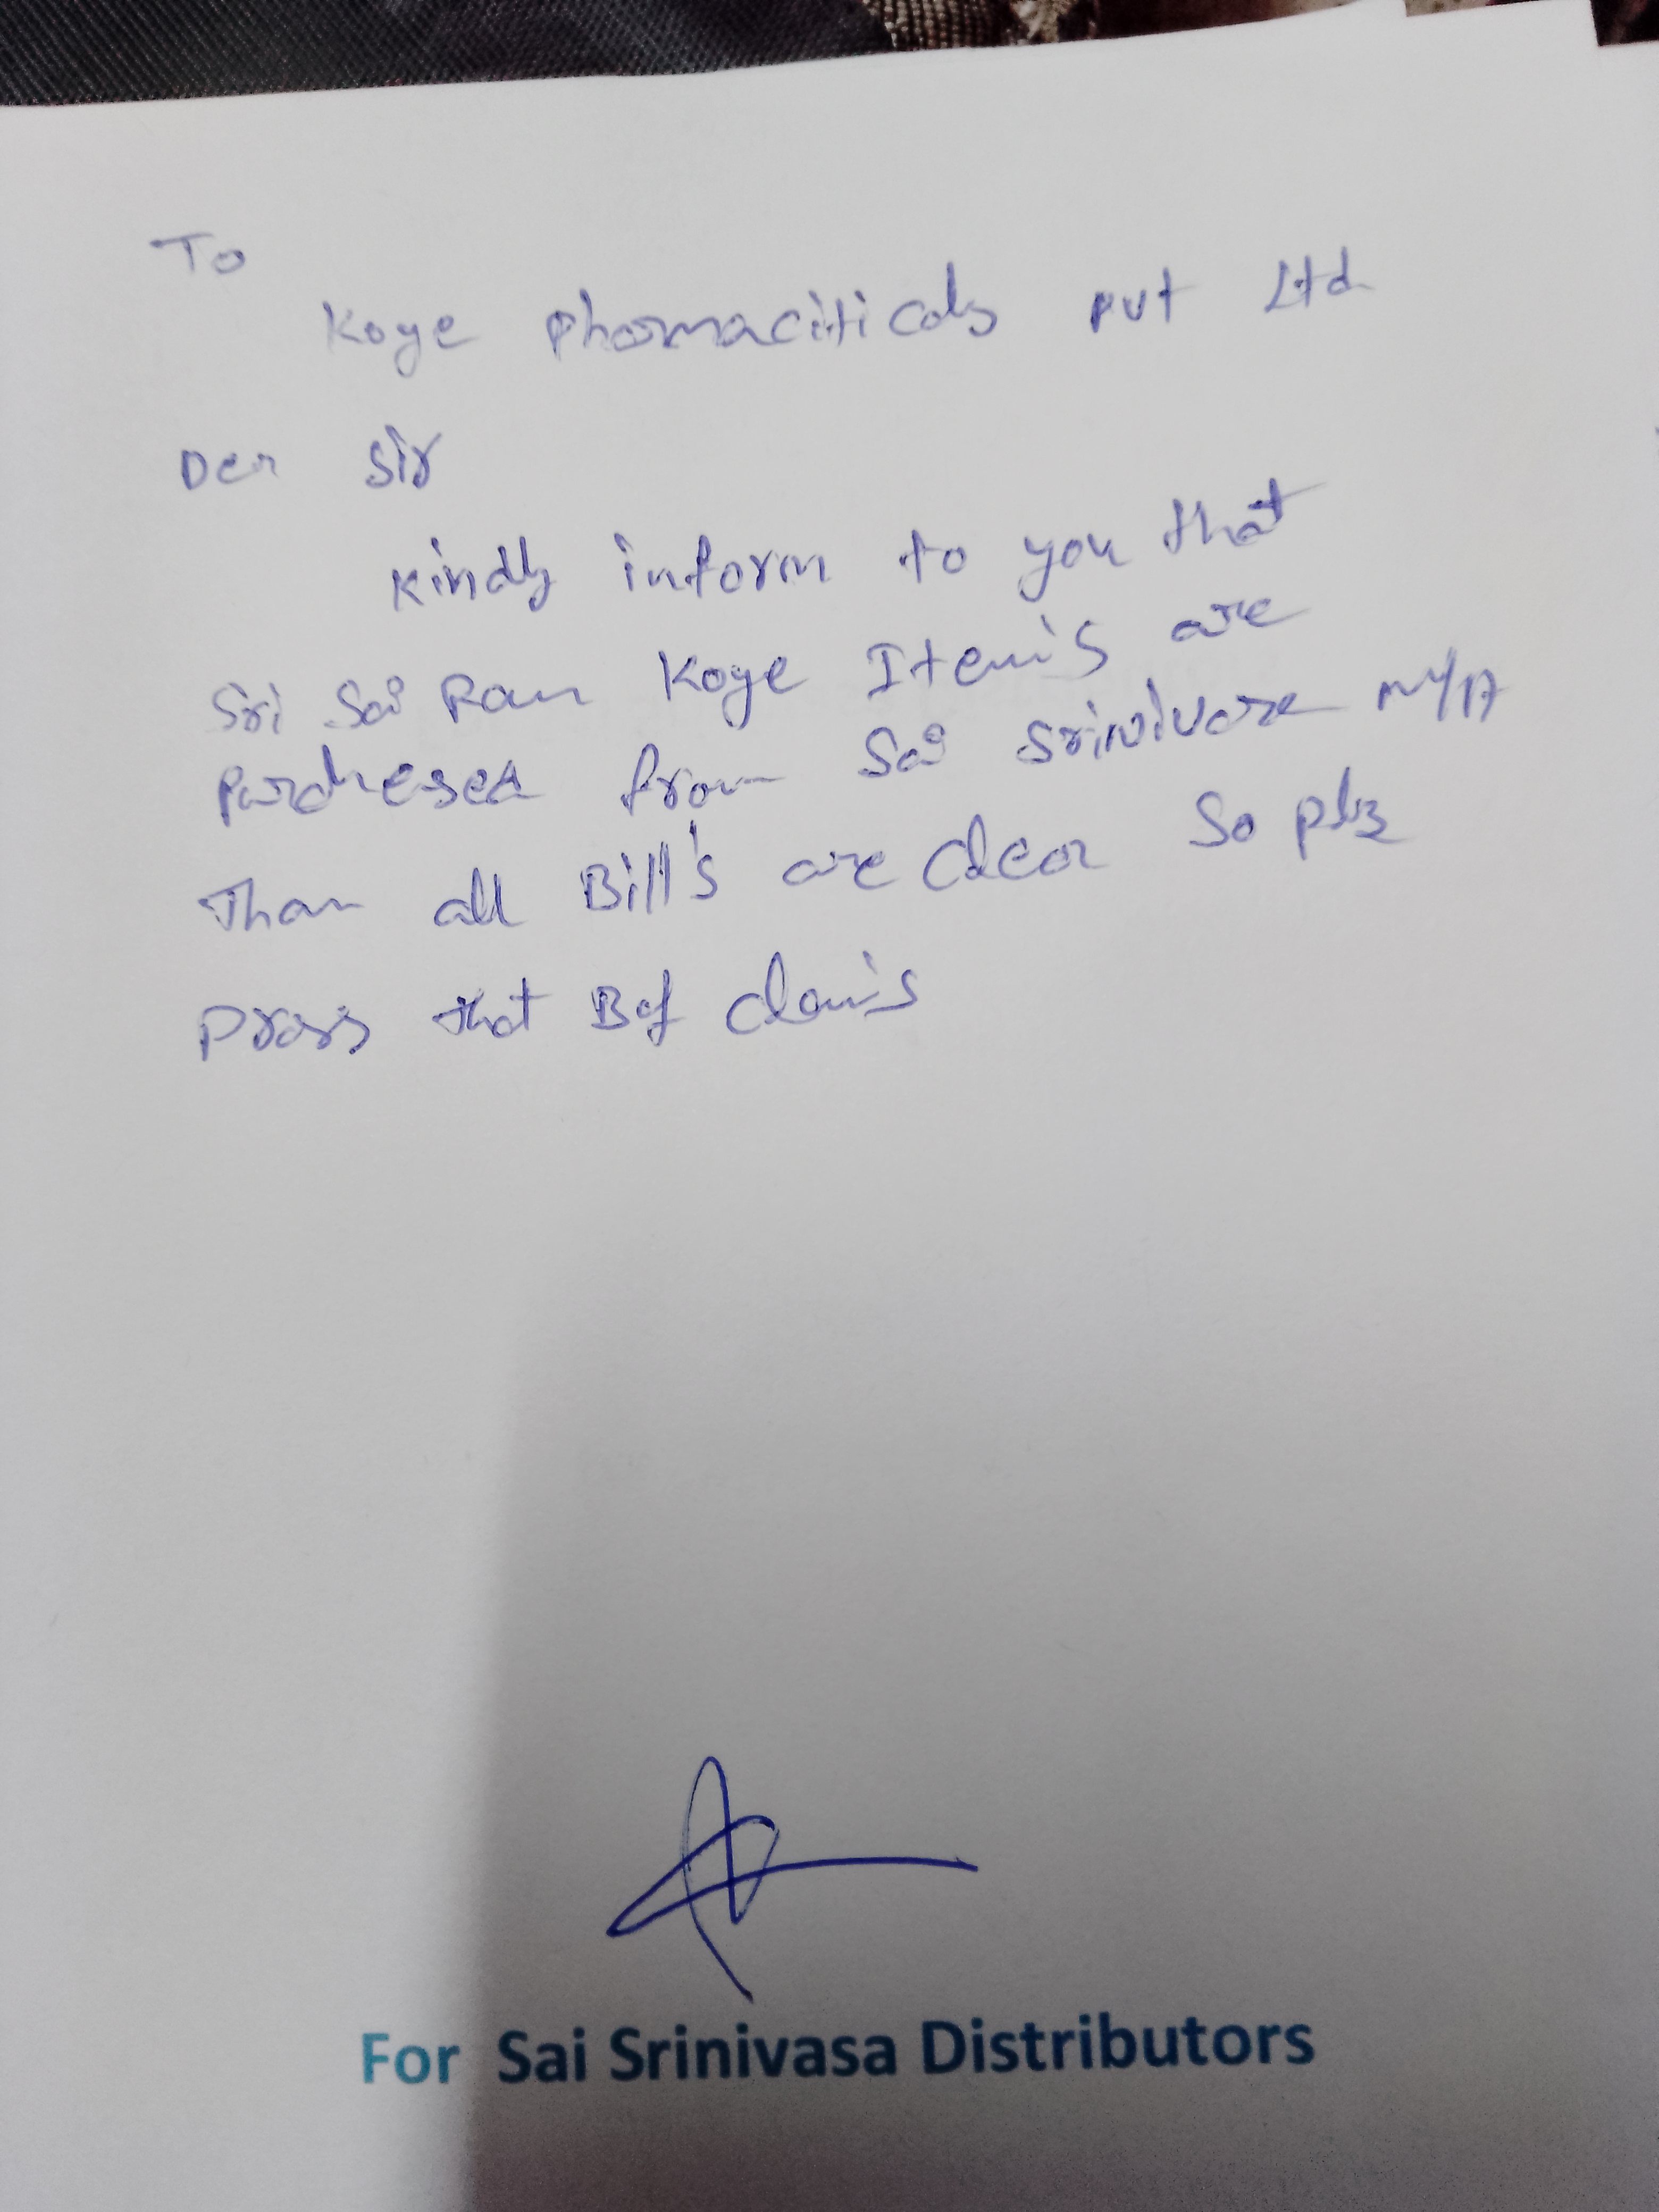 To
Koye Pharmaciticals Pvt Ltd
Der Sir
Kindly inform to you that
Sri Sai Ram Koye Item's are
Purchesed from Sai Srinivasa
Than all Bill's are Clear So plz
that Clami's
For Sai Srinivasa Distributors